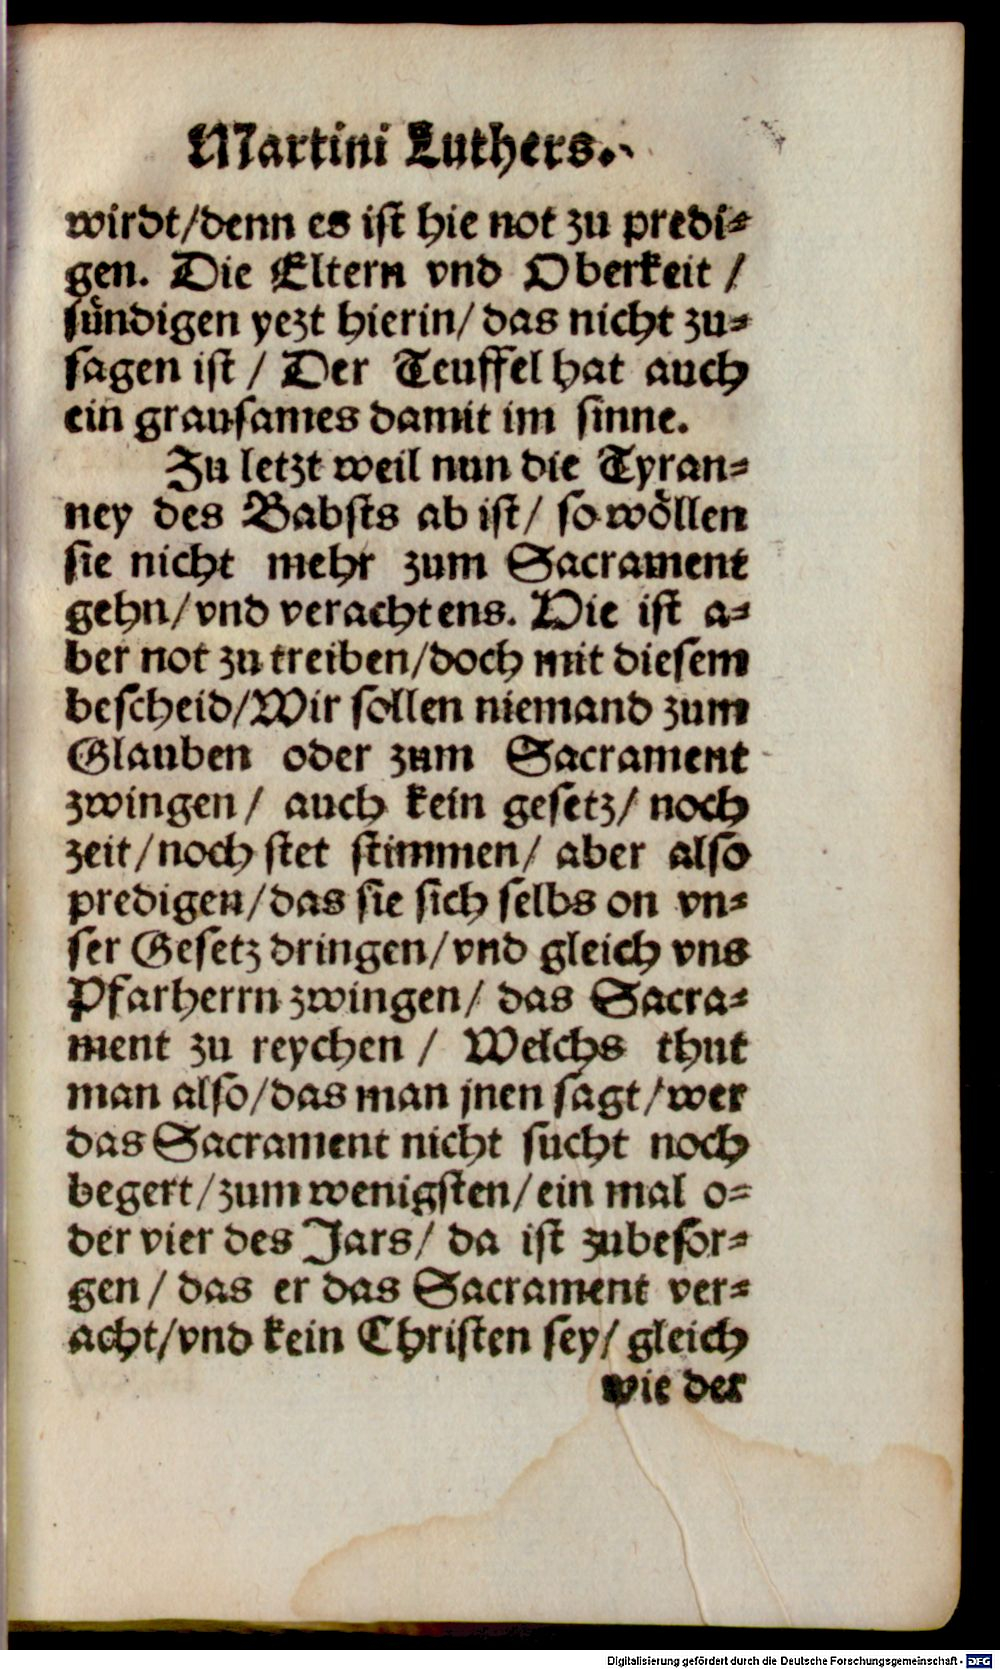 Martini Luthers.
wirdt/denn es ist hie not zu predi⸗
gen. Die Eltern vnd Oberkeit /
sündigen yezt hierin/ das nicht zu⸗
sagen ist / Der Teuffel hat auch
ein grausames damit im sinne.
Zu letzt weil nun die Tyran⸗
ney des Babsts ab ist/ so wöllen
sie nicht mehr zum Sacrament
gehn/vnd verachtens. Hie ist a⸗
ber not zu treiben/doch mit diesem
bescheid/Wir sollen niemand zum
Glauben oder zum Sacrament
zwingen/ auch kein gesetz/ noch
zeit/noch stet stimmen/ aber also
predigen/das sie sich selbs on vn⸗
ser Gesetz dringen/vnd gleich vns
Pfarherrn zwingen/ das Sacra⸗
ment zu reychen / Welchs thut
man also/das man jnen sagt/wer
das Sacrament nicht sucht noch
begert/zum wenigsten/ein mal o⸗
der vier des Jars/ da ist zubesor⸗
gen/ das er das Sacrament ver⸗
acht/vnd kein Christen sey/ gleich
wie der
Digitalisierung gefördert durch die Deutsche Forschungsgemeinschaft - DFG